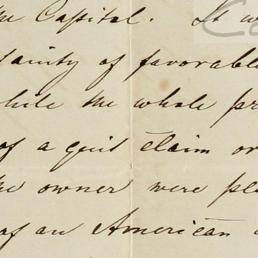 the Capital. It w
tainty of favorable
while the whole pr
of a quit claim or
the owner were pla
of an American